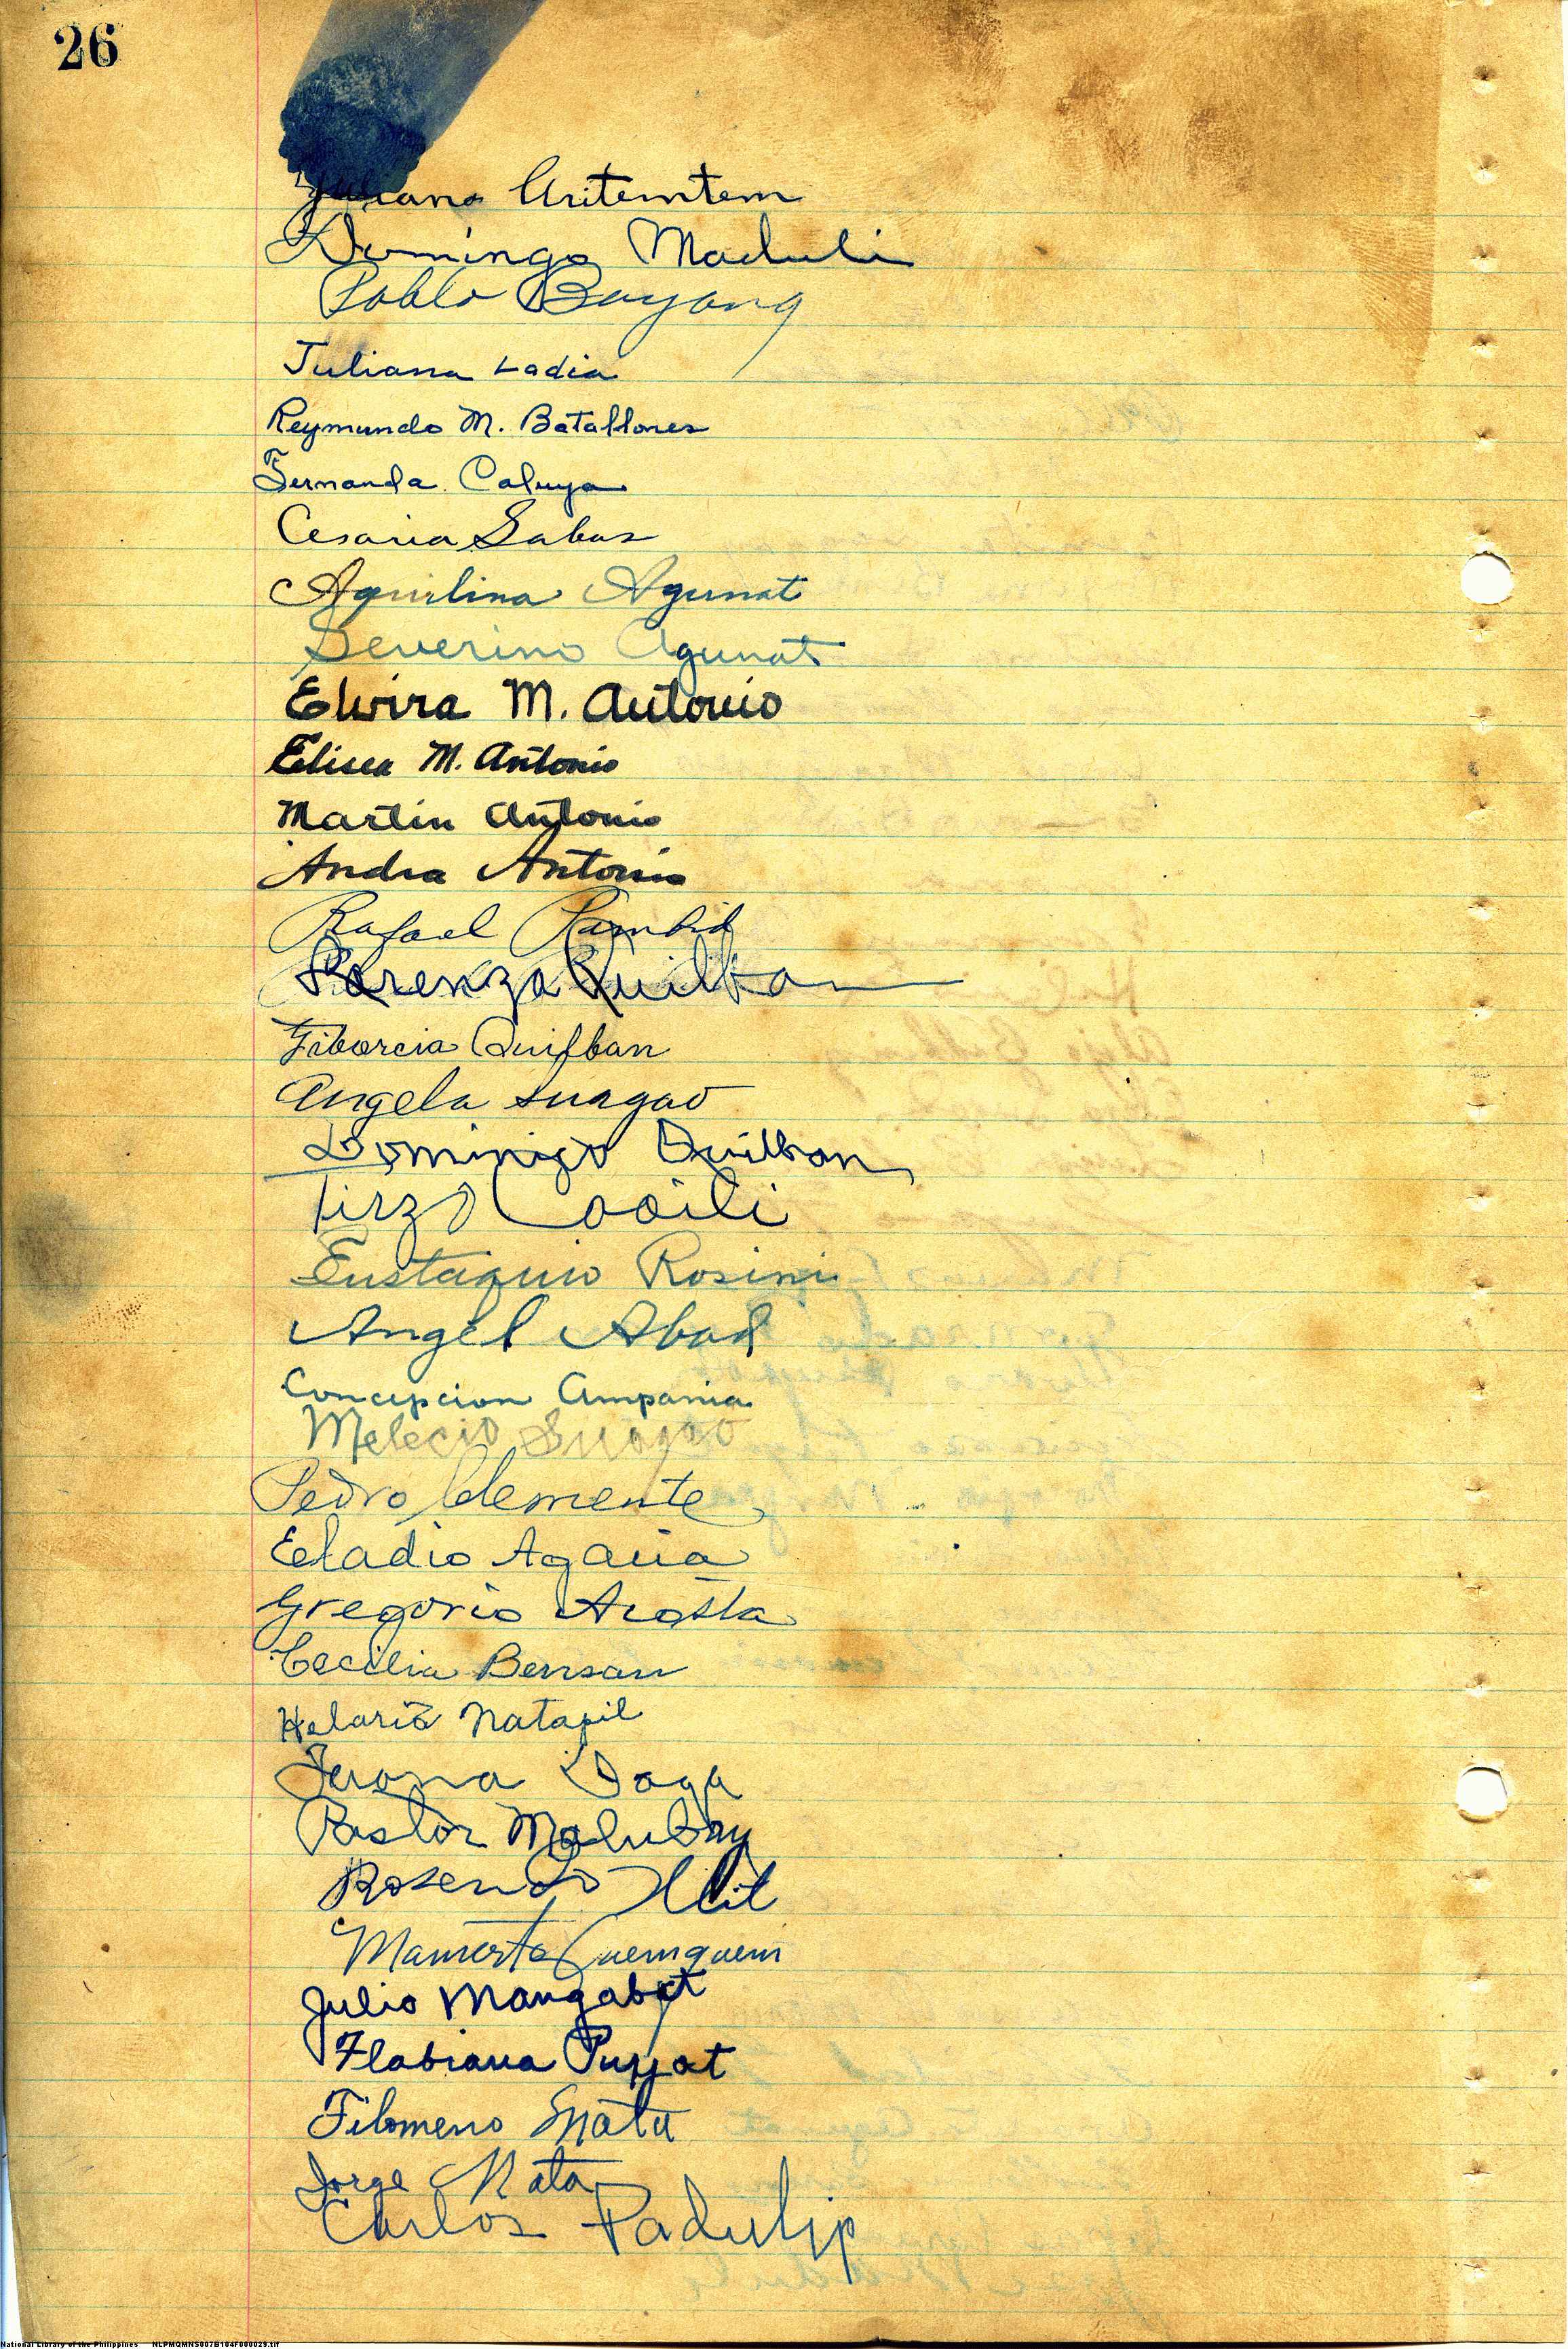 26
Juliana Aritemtem
Domingo Maduli
Pablo Bayang
Juliana Ladia
Reymundo M. Batallones
Fernanda Caluya
Cesaria Sabas
Aquilina Agunat
Severino Agunat
Elvira M. Antonio
Elisea M. Antonio
Martin Antonio
Andra Antonio
Rafael Pambid
Lorenza Quilban
Tiborcia Quilban
Angela Suagao
Dominigo Quilban
Tirzo Cacili
Eustaquio Rosini
Angel Abad
Concepcion Campania
Melecio Suagao
Pedro Clemente
Eeladio Agaria
Gregorio Acosta
Cecilia Bensan
Helaria Natapil
Daga
Pastor Malubay
Rosendo Ilit
Mamerta Quemquem
Julio Mangabat
Flabiana Puyat
Filomeno Mata
Jorge Mata
Carlos Padulip
National Library of the Philippines NLPMQMNS007B104F000029.tif